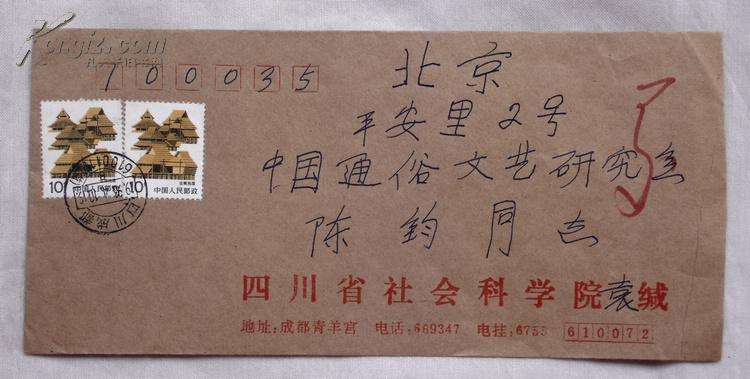 Kongfz.com
100035
北京
平安里2号
中国通俗文艺研究会
陈钧同志
四川省社会科学院袁缄
地址:成都青羊宫 电话:669347 电挂:6755 610072
10 中国人民邮政
10 中国人民邮政
四川成都